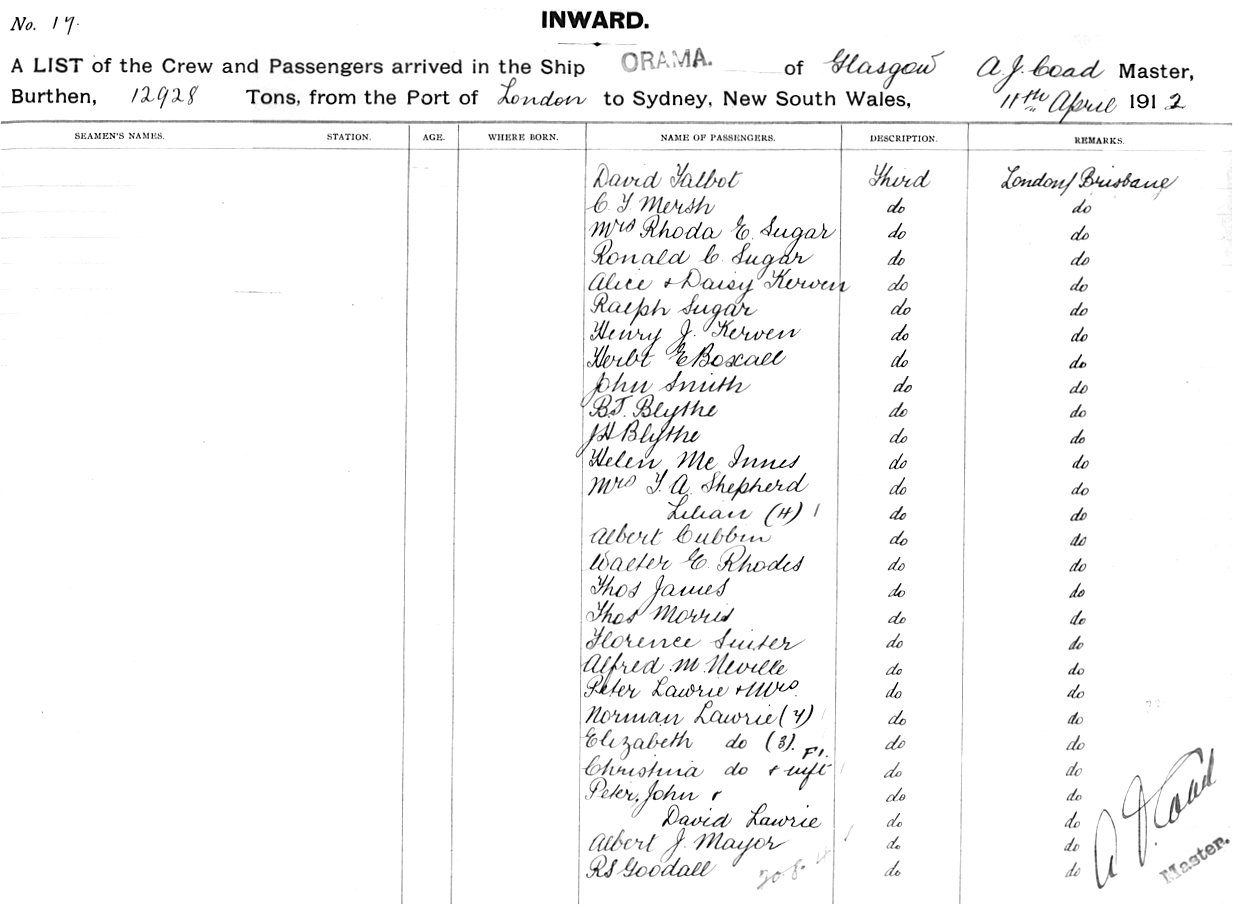 No. 17.
INWARD.
A LIST of the Crew and Passengers arrived in the Ship ORAMA. of Glasgow A. J. Coad Master,
Burthen, 12928 Tons, from the Port of London to Sydney, New South Wales, 11th April 1912
SEAMEN'S NAMES. STATION. AGE. WHERE BORN. NAME OF PASSENGERS. DESCRIPTION. REMARKS.
David Talbot Third London/Brisbane
C. T. Mersh do do
Mrs Rhoda E. Sugar do do
Ronald C. Sugar do do
Alice + Daisy Kerven do do
Ralph Sugar do do
Henry J. Kerven do do
Herbt E Boxall do do
John Smith do do
B.T. Blythe do do
JH Blythe do do
Helen Mc Innes do do
Mrs T. A. Shepherd do do
Lilian (4) do do
Albert Cubbin do do
Walter E. Rhodes do do
Thos James do do
Thos Morris do do
Florence do do
Alfred M Neville do do
Peter Lawrie + Mrs. do do
Norman Lawrie (7) do do
Elizabeth do (3). do do
Christina do + inft do do
Peter, John + do do
David Lawrie do do
Albert J. Mayor do do
RS Goodall do do
A J Coad
Master.